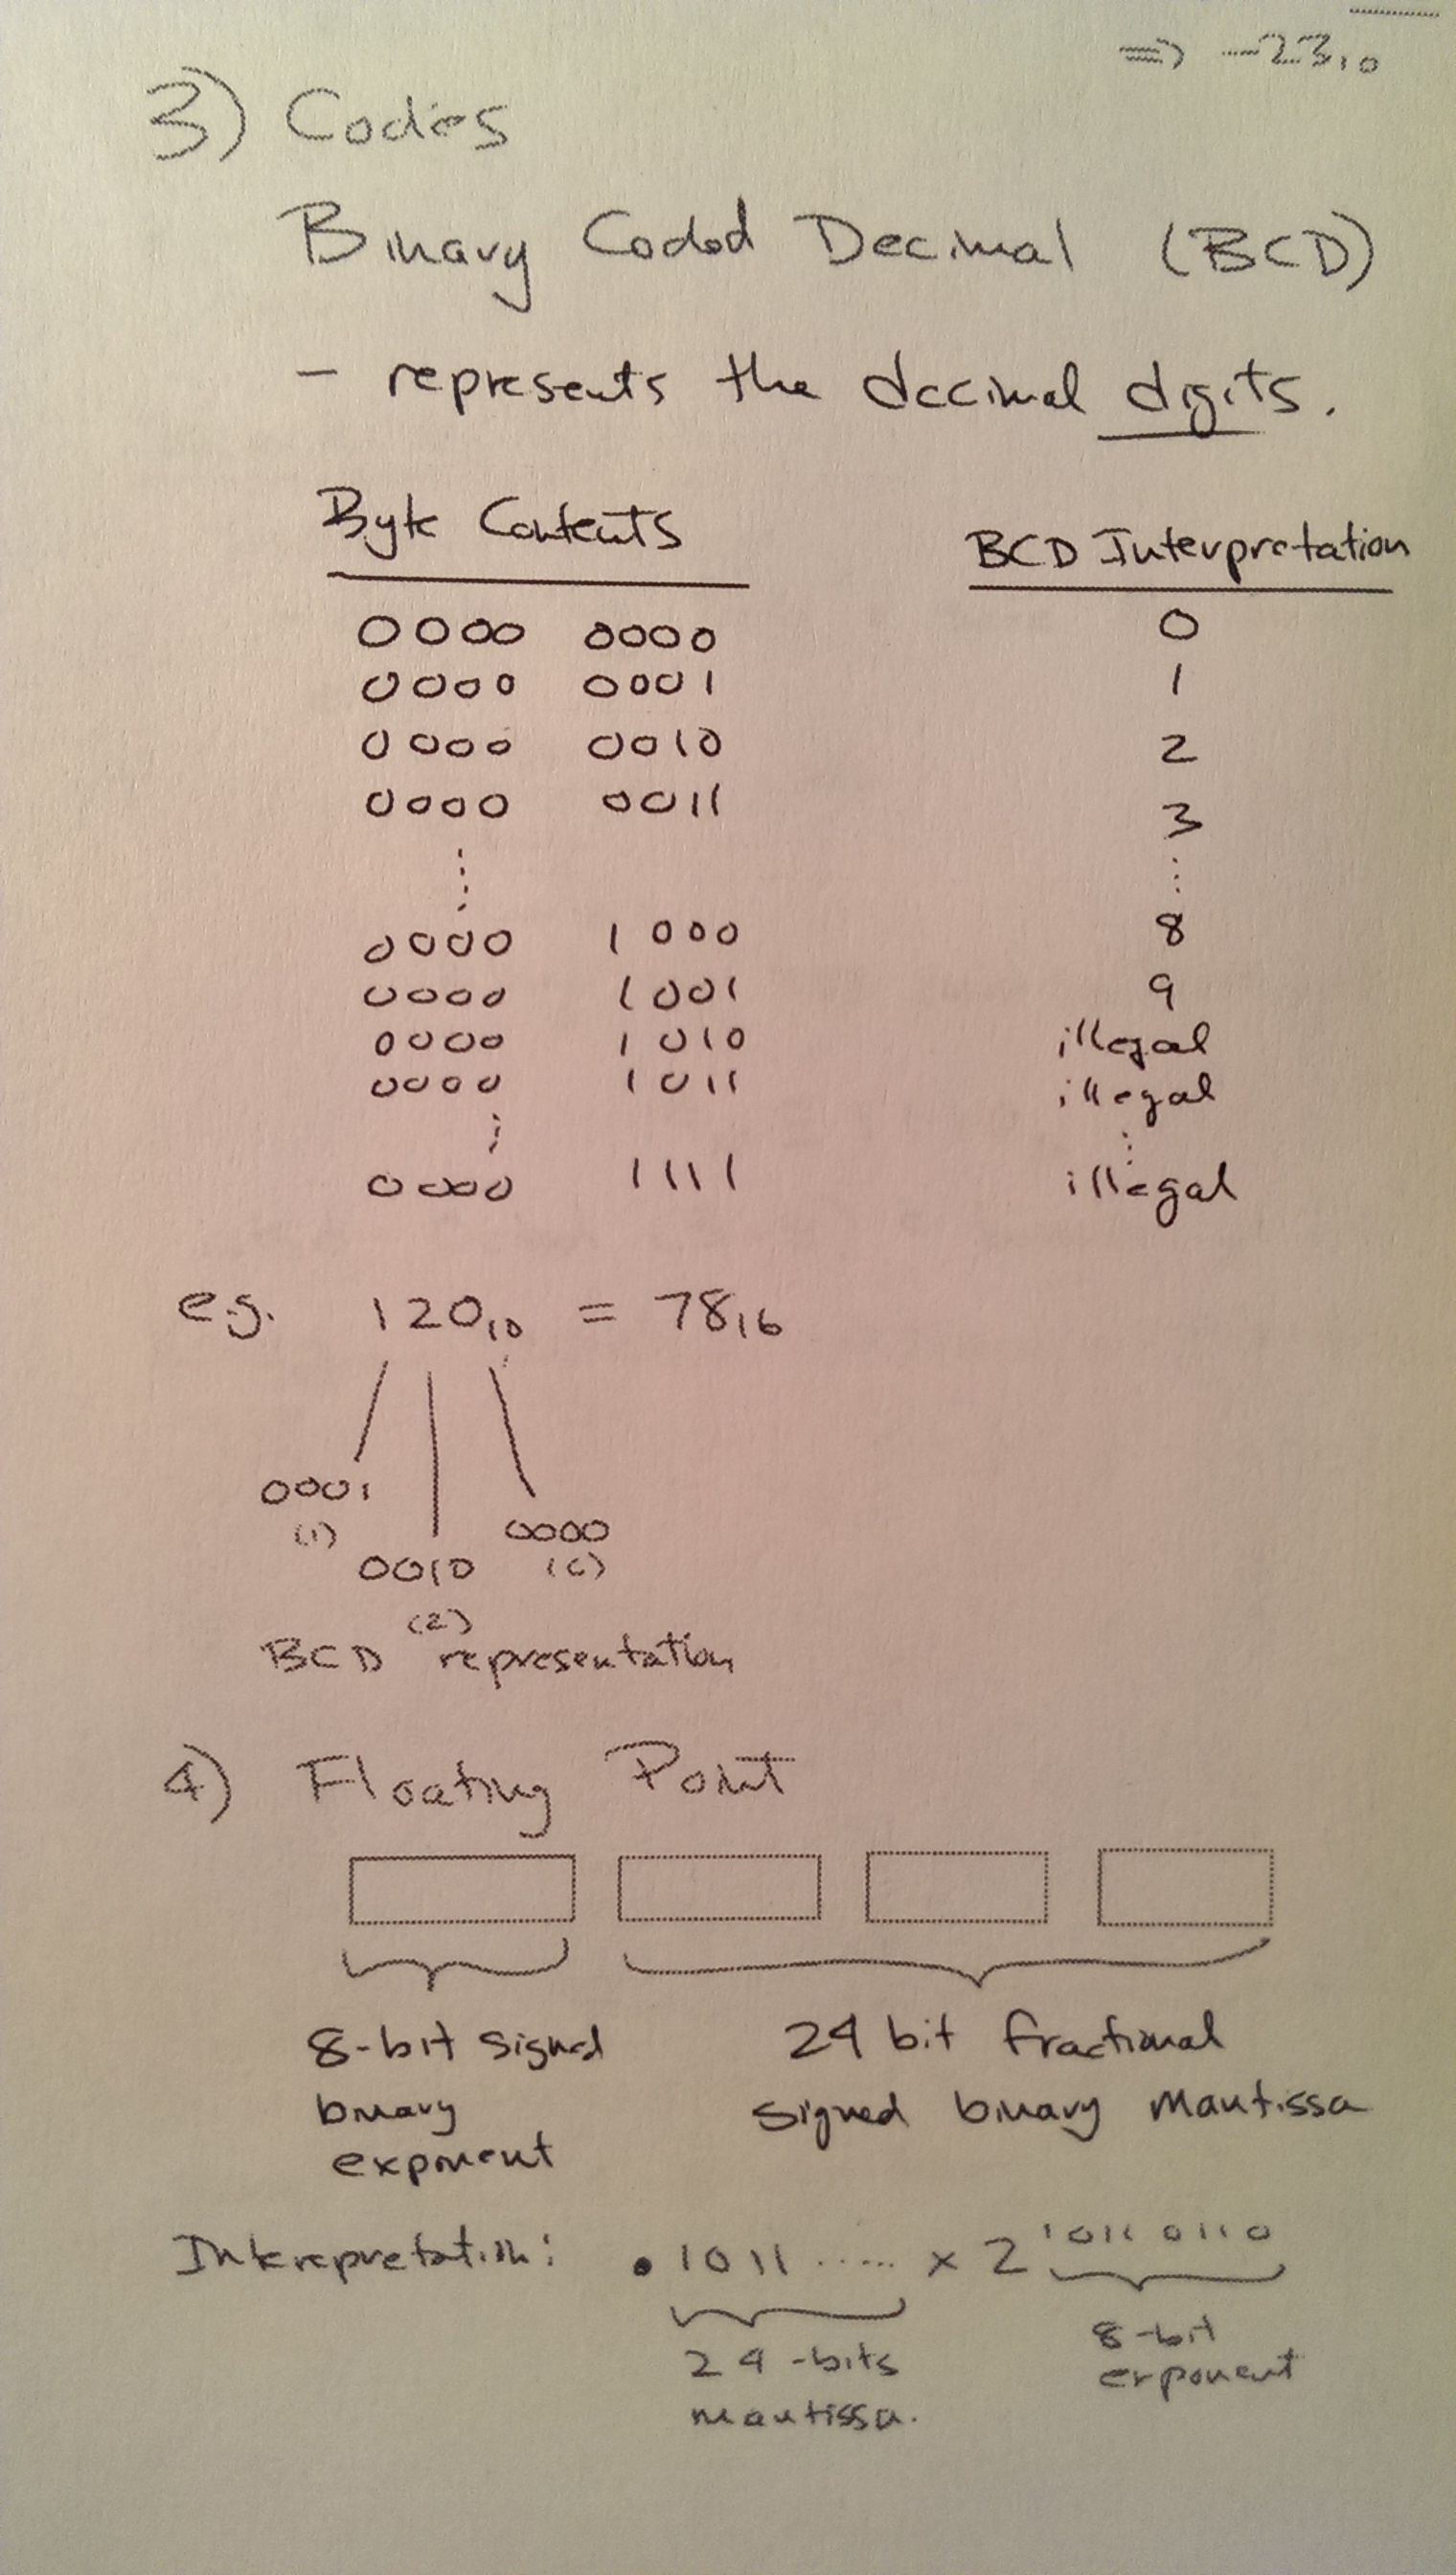 ⇒ -23₁₀
3) Codes
Binary Coded Decimal (BCD)
- represents the decimal digits.
Byte Contents BCD Interpretation
0000 0000 0
0000 0001 1
0000 0010 2
0000 0011 3
⋮ ⋮
0000 1000 8
0000 1001 9
0000 1010 illegal
0000 1011 illegal
⋮ ⋮
0000 1111 illegal
e.g. 120₁₀ = 78₁₆
0001
(1)
0000
(0)
0010
(2)
BCD representation
4) Floating Point
8-bit signed 24 bit fractional
binary signed binary mantissa
exponent
Interepretation: .1011 ..... x 2^10110110
24-bits 8-bit
mantissa. exponent